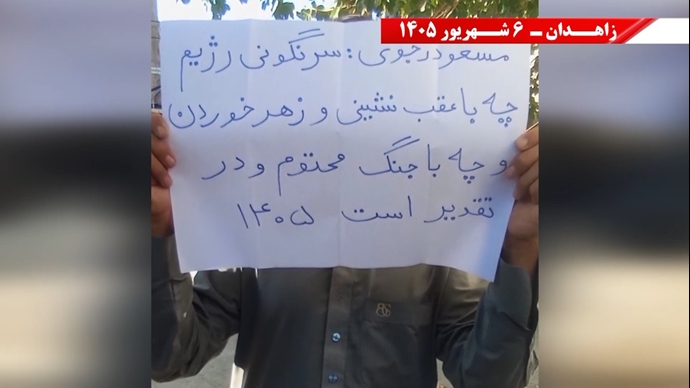 زاهـدان ـ ۶ شهریور ۱۴۰۵
مسعود رجوی: سرنگونی رژیم
چه با عقب نشینی و زهر خوردن
و چه با جنگ محتوم و در
تقدیر است ۱۴۰۵